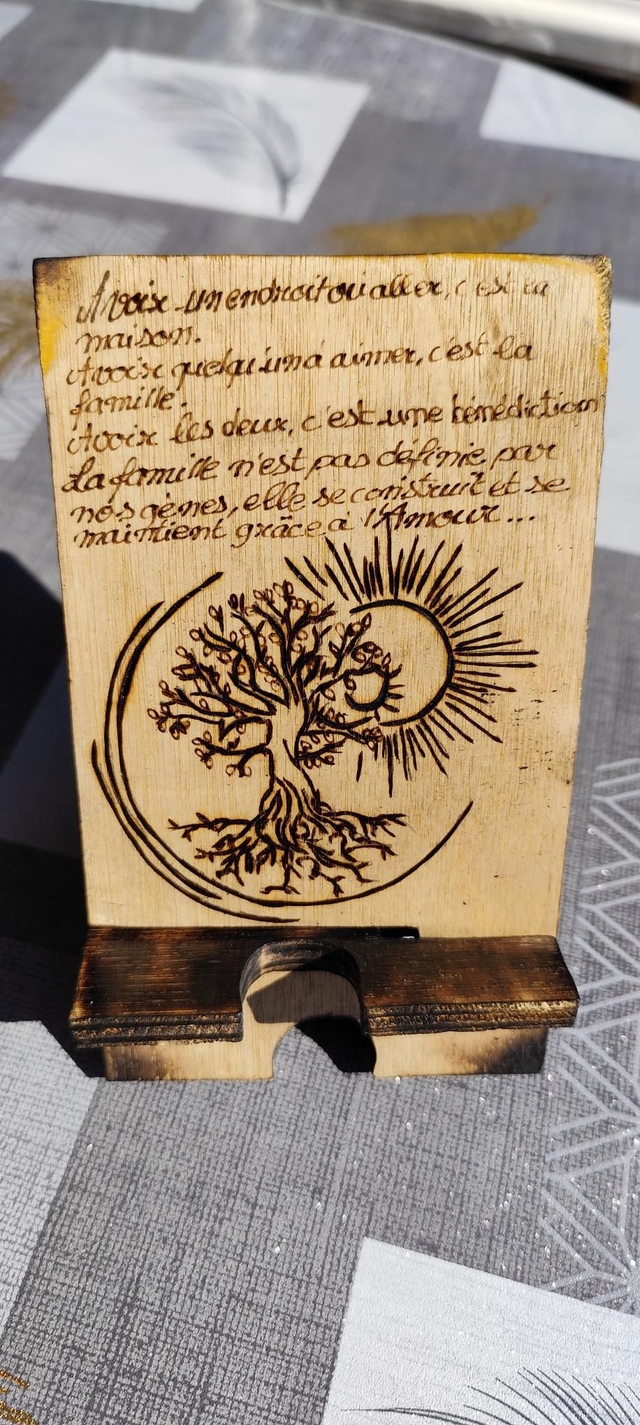 Avoir un endroit ou aller, c'est la
maison.
Avoir quelqu'un à aimer, c'est la
famille.
Avoir les deux, c'est une bénédiction
La famille n'est pas définie par
nos gènes, elle se construit et se
maintient grâce à l'Amour...